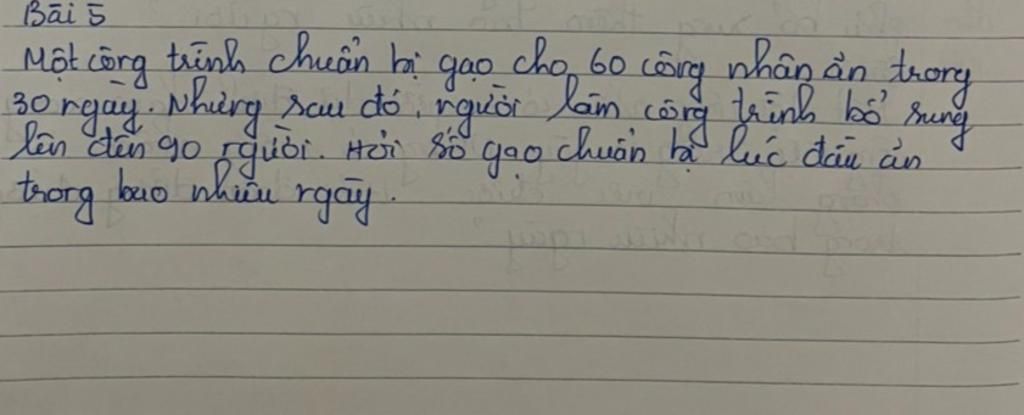 Bài 5
Một công trình chuẩn bị gạo cho 60 công nhân ăn trong
30 ngày. Nhưng sau đó, người làm công trình bổ sung
lên đến 90 người. Hỏi số gạo chuẩn bị lúc đầu ăn
trong bao nhiêu ngày.